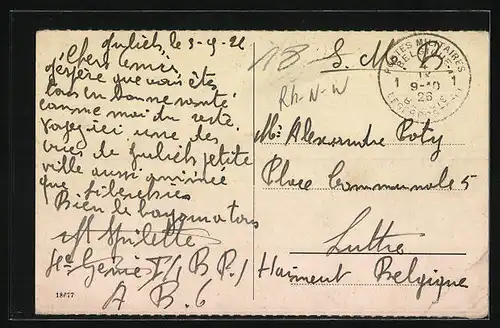 Juliers, le 3-9-26
Chers amis
J'espère que vous êtes
tous en bonne santé
comme moi du reste.
Voyez ici une des
vues de Juliers petite
ville aussi animée
que
Bien le bonjour à tous
18677
A B. 6
18
S. M.
Rh-N-W
POSTES MILITAIRES
BELGIQUE
1
9-10
26
Mr Alexandre Poty
Place Communale 5
Luttre
Hainaut Belgique